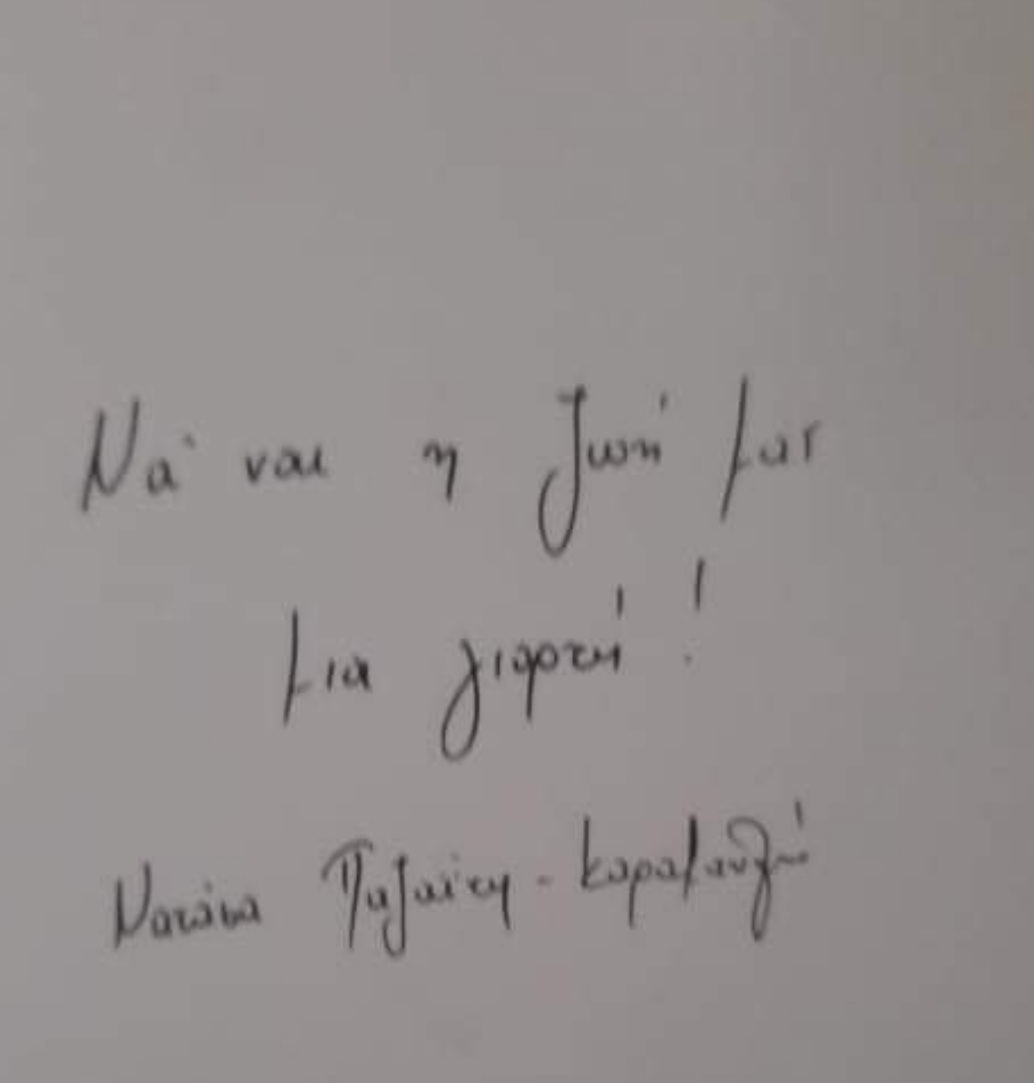 Νά ναι η ζωή μας
μια γιορτή!
Νατάσα Παζαΐτη - Καραμανλή